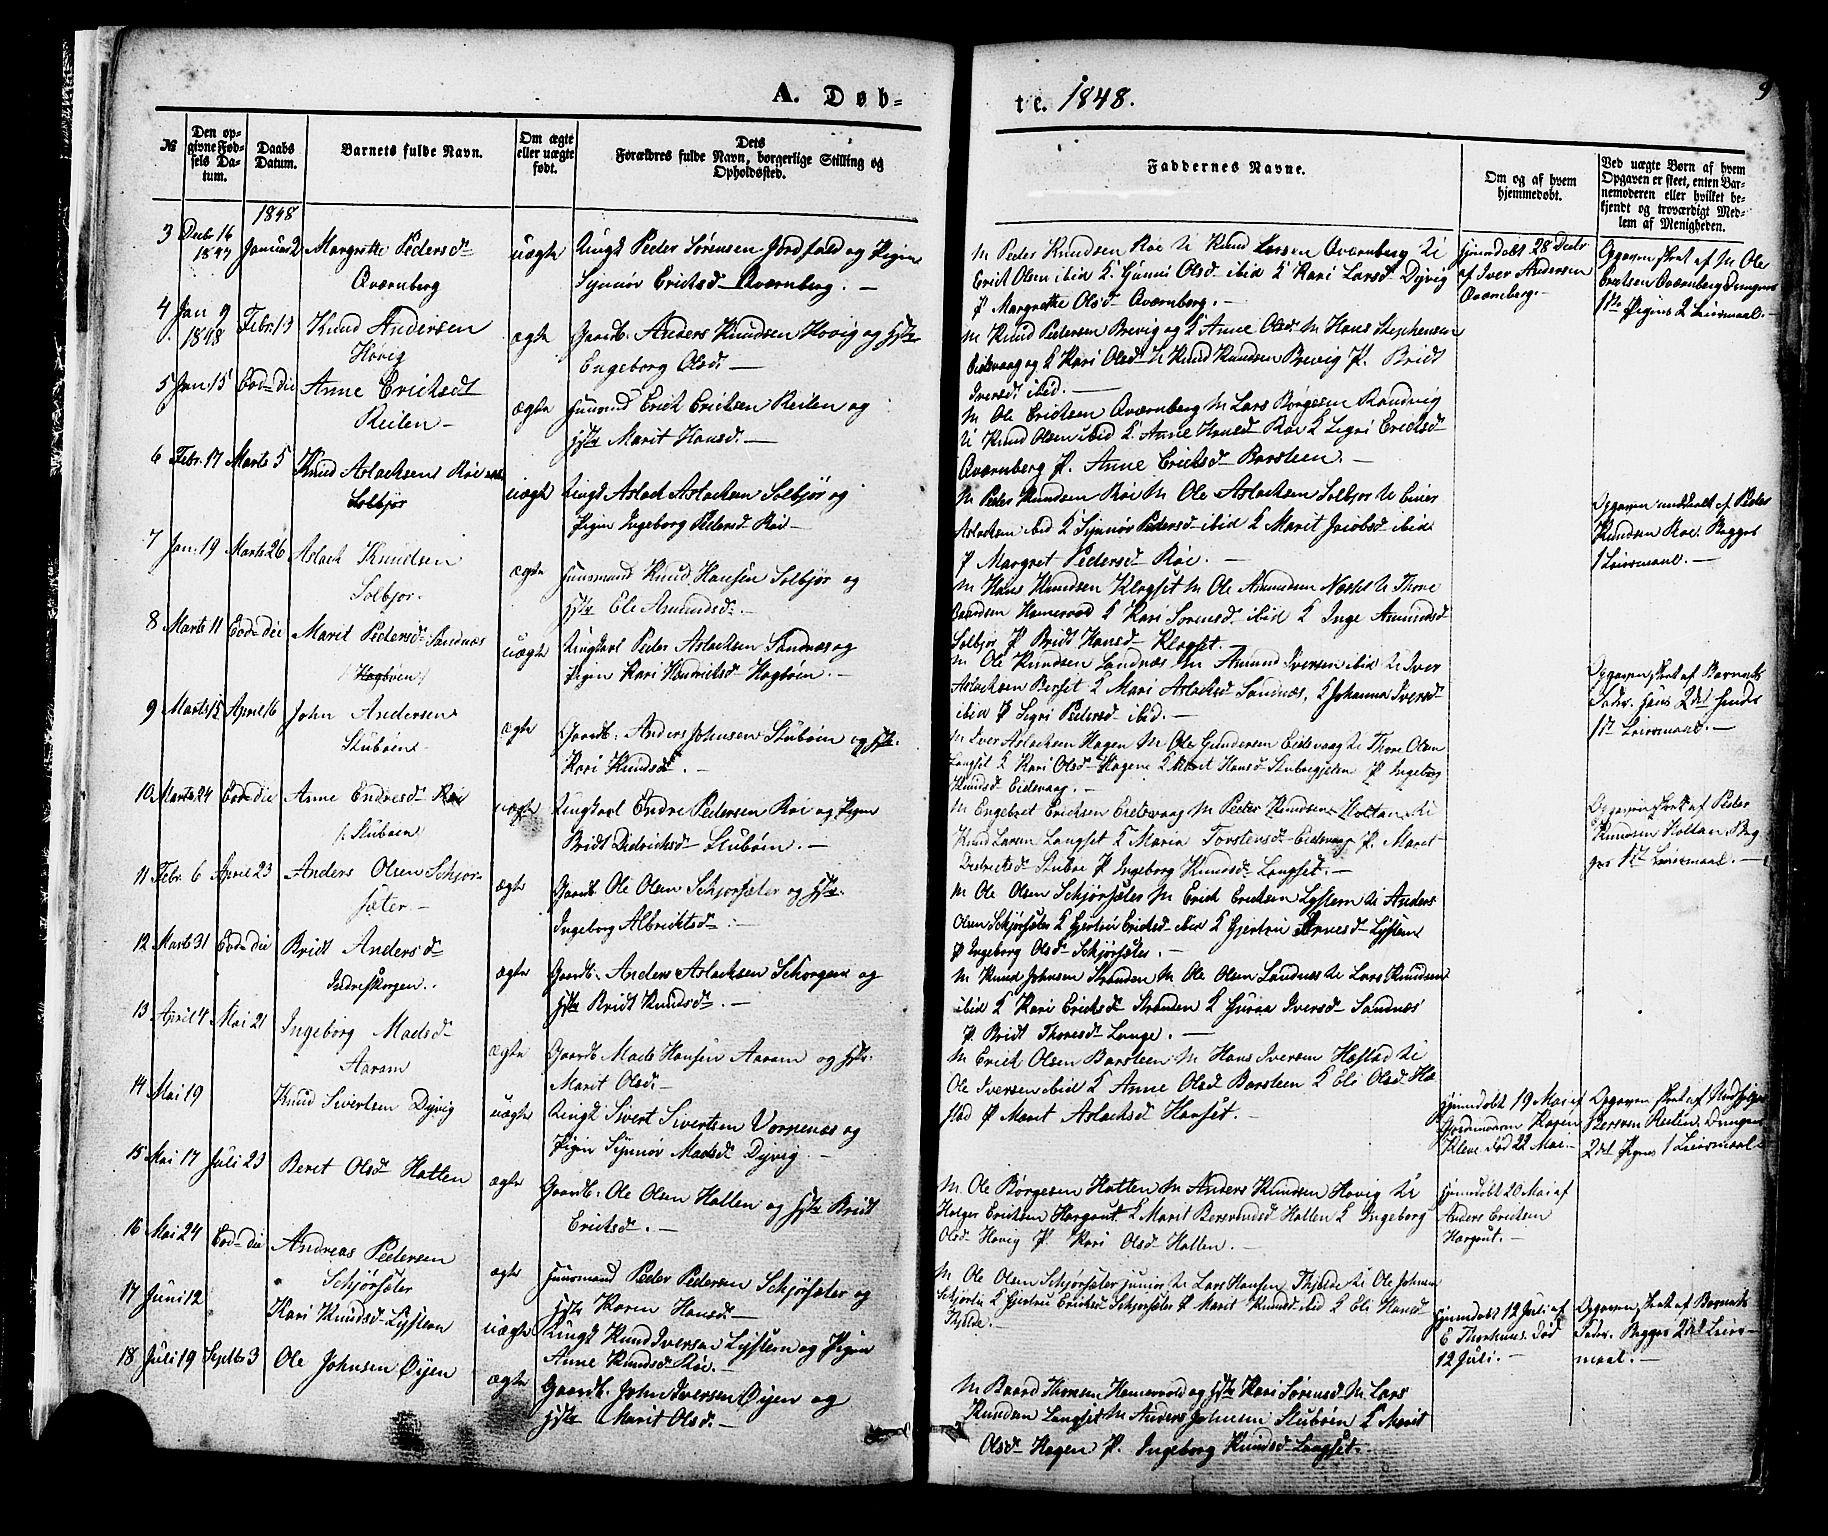 A. Døb-
te. 1848.
9
№
Den opgivne Fødsels Datum.
Daabs Datum.
Barnets fulde Navn.
Om ægte eller uægte født.
Dets Forældres fulde Navn, borgerlige Stilling og Opholdssted.
Faddernes Navne.
Om og af hvem hjemmedøbt.
Ved uægte Børn af hvem Opgaven er skeet, enten Barnemoderen eller hvilket bekjendt og troværdigt Medlem af Menigheden.
1848
3 Decb 16 1847 Januar 2 Margrethe Pedersd
Qværnberg
uægte
Ungk Peder Sørensen Jordfald og Pigen
Synnøv Ericksd Qværnberg.
M Peder Knudsen Roe U Knud Larsen Qværnberg U
Erick Olsen ibid K Gunni Olsd ibid K Kari Larsd Dyvig
P Margrethe Olsd Qværnberg.
Hjemdøbt 28 Decbr
af Iver Andersen
Qværnberg.
Opgaven skeet af M Ole
Ericksen Qværnberg Drengens
1ste Pigens 2 Leiermaal.
4 Jan 9 1848 Febr. 13 Knud Andersen
Høvig
ægte
Gaardb. Anders Knudsen Hovig og Hstr
Engeborg Olsd
M Knud Pedersen Brevig og K Anne Olsd M Hans Stephensen
Eidsvaag og K Kari Olsd U Knud Knudsen Brevig P. Bridt
Iversdt ibid.
5 Jan. 15 Eod die Anne Ericksdt
Reiten
ægte
Huusmd Erick Ericksen Reiten og
Hstr Marit Hansd.
M Ole Ericksen Qværnberg M Lars Børgesen Randvig
U Knud Olsen ibid K Anne Hansd Roe K Sigri Ericksd
Qværnberg P. Anne Ericksd Barsteen.
6 Febr. 17 Marts 5 Knud Aslacksen Roe
Solbjør
uægte
Ungk Aslack Aslacksen Solbjør og
Pigen Ingeborg Pedersd Roe
M Peder Knudsen Roe M Ole Aslacksen Solbjør U Einer
Aslacksen ibid K Synnøv Pedersd ibid K Marit Jacobsd ibid
P Margret Pedersd Roe.
Opgaven meddeelt af Peder
Knudsen Roe. Begges
1 Leiermaal.
7 Jan. 19 Marts 26 Aslack Knudsen
Solbjør.
ægte
Huusmand Knud Hansen Solbjør og
Hstr Eli Amundsd.
M Hans Knudsen Klogset M Ole Amundsen Næste U Thore
Baardsen Hamervold K Kari Sørensd ibid K Inge Amundsd
Solbjør P Bridt Hansd Klogset.
8 Marts 11 Eod die Marit Pedersd Sandnæs
/Hagbøen/
uægte
Ungkarl Peder Aslacksen Sandnæs og
Pigen Kari Henricksd Hagbøen.
M Ole Knudsen Sandnæs M Amund Iversen ibid U Iver
Aslacksen Berset K Mari Aslacksd Sandnæs, K Johanna Iversd
ibid P Sigri Pedersd ibid.
Opgaven skeet af Barnets
Fader. Hans 2det hendes
1st Leiermaal.
9 Marts 15 April 16 John Andersen
Stubøen
ægte
Gaardb: Anders Johnsen Stubøen og Hstr.
Kari Knudsd.
M Iver Aslacksen Hagen M Ole Gundersen Eidsvaag U Thore Olsen
Langset K Kari Olsd Hagene K Marit Hansd P Ingeborg
Knudsd Eidsvaag.
10 Marts 24 Eod die Anne Endresd Roe
/: Stubøen/
uægte
Ungkarl Endre Pedersen Roe og Pigen
Bridt Didricksd Stubøen.
M Engebret Ericksen Eidsvaag M Peder Knudsen Holtan U
Knud Larsen Langset K Maria Torstensd Eidsvaag P. Maret
Didricksd Stuböe P Ingeborg Knudsd Langset.
Opgaven skeet af Peder
Knudsen Holtan. Beg
ges 1st Leiermaal.
11 Febr. 6 April 23 Anders Olsen Schjør-
sæter.
ægte
Gaardb. Ole Olsen Schjørsæter og Hstr.
Ingeborg Albricktsd
M Ole Olsen Schjørsæter M Erick Ericksen Lysteen U Anders
Olsen Schjørsæter K Gjertrü Ericksd ibid K Gjertrü Arnesd Lysteen
P Ingeborg Olsd Schjørsæter.
12 Marts 31 Eod die Bridt Andersd
Indreskorgen.
ægte
Gaardb. Anders Aslacksen Schorgen og
Hstr Bridt Knudsd.
M Knud Johnsen Stranden M Ole Olsen Sandnæs U Lars Knudsen
ibid K Kari Ericksd Stranden K Guraa Iversd Sandnæs
P Bridt Thoresd Lange.
13 April 4 Mai 21 Ingeborg Madsd
Aaram
ægte
Gaardb. Mads Hansen Aaram og Hstr.
Marit Olsd.
M Erick Olsen Barsteen M Hans Iversen Hæstad U
Ole Iversen ibid K Anne Olsd Barsteen K Eli Olsd Hæ
stad P Marit Aslacksd Hanset.
14 Mai 19 Knud Sivertsen Dyvig
uægte
Ungk Sivert Sivertsen Vorpenæs og
Pigen Synnøv Madsd Dyvig.
Hjemdøbt 19 Mai af
Gjordmoderen Hagen
Kleve død 22 Mai
Reiten, Drengens
2det Pigens 1 Leiermaal
15 Mai 17 Juli 23 Beret Olsd Hatten
ægte
Gaardb. Ole Olsen Hatten og Hstr Bridt
Ericksd.
M. Ole Børgesen Hatten M Anders Knudsen Hovig U
Holger Ericksen Hargout K Marit Bersvendsd Hatten K Ingeborg
Olsd Hovig P. Kari Olsd Hatten.
Hjemdøbt 20 Mai af
Anders Ericksen
Hargout.
16 Mai 24 Eod die Andreas Pedersen
Schjørsæter
ægte
Huusmand Peder Pedersen Schjørsæter og
Hstr Karen Hansd
M Ole Olsen Schjørsæter junior U Lars Hansen Thjelde U Ole Johnsen
K Gjertru Ericksd Schjørsæter P Marit Knudsd ibid K Eli Hansd
Thjelde.
17 Juni 12 Kari Knudsd Lysteen
uægte
Ungk Knud Iversen Lysteen og Pigen
Anne Knudsd Roe.
Hjemdøbt 12 Juli af
E Thorhuus. død
12 Juli.
Opgaven skeet af Barnets
Fader. Begges 2det Leier-
maal.
18 Juli 19 Septb 3 Ole Johnsen Øyen
ægte
Gaardb. John Iversen Øyen og
Hstr Marit Olsd.
M Baard Thoresen Hamervold og Hstr Kari Sørensd M Lars
Knudsen Langset M Anders Johnsen Stubøen K Marit
Olsd Hagen P. Ingeborg Knudsd Langset.